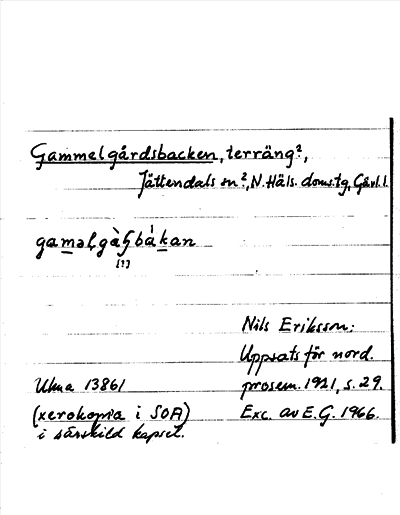 Gammelgårdsbacken, terräng?,
Jättendals sn?, N. Häls. doms.tg, Gävl. l.
gamǝlgàʃbákan
[!]
Nils Eriksson:
Uppsats för nord.
Ulma 13861 prosem. 1921, s. 29.
(xerokopia i SOA) Exc. av E.G. 1966.
i särskild kapsel.